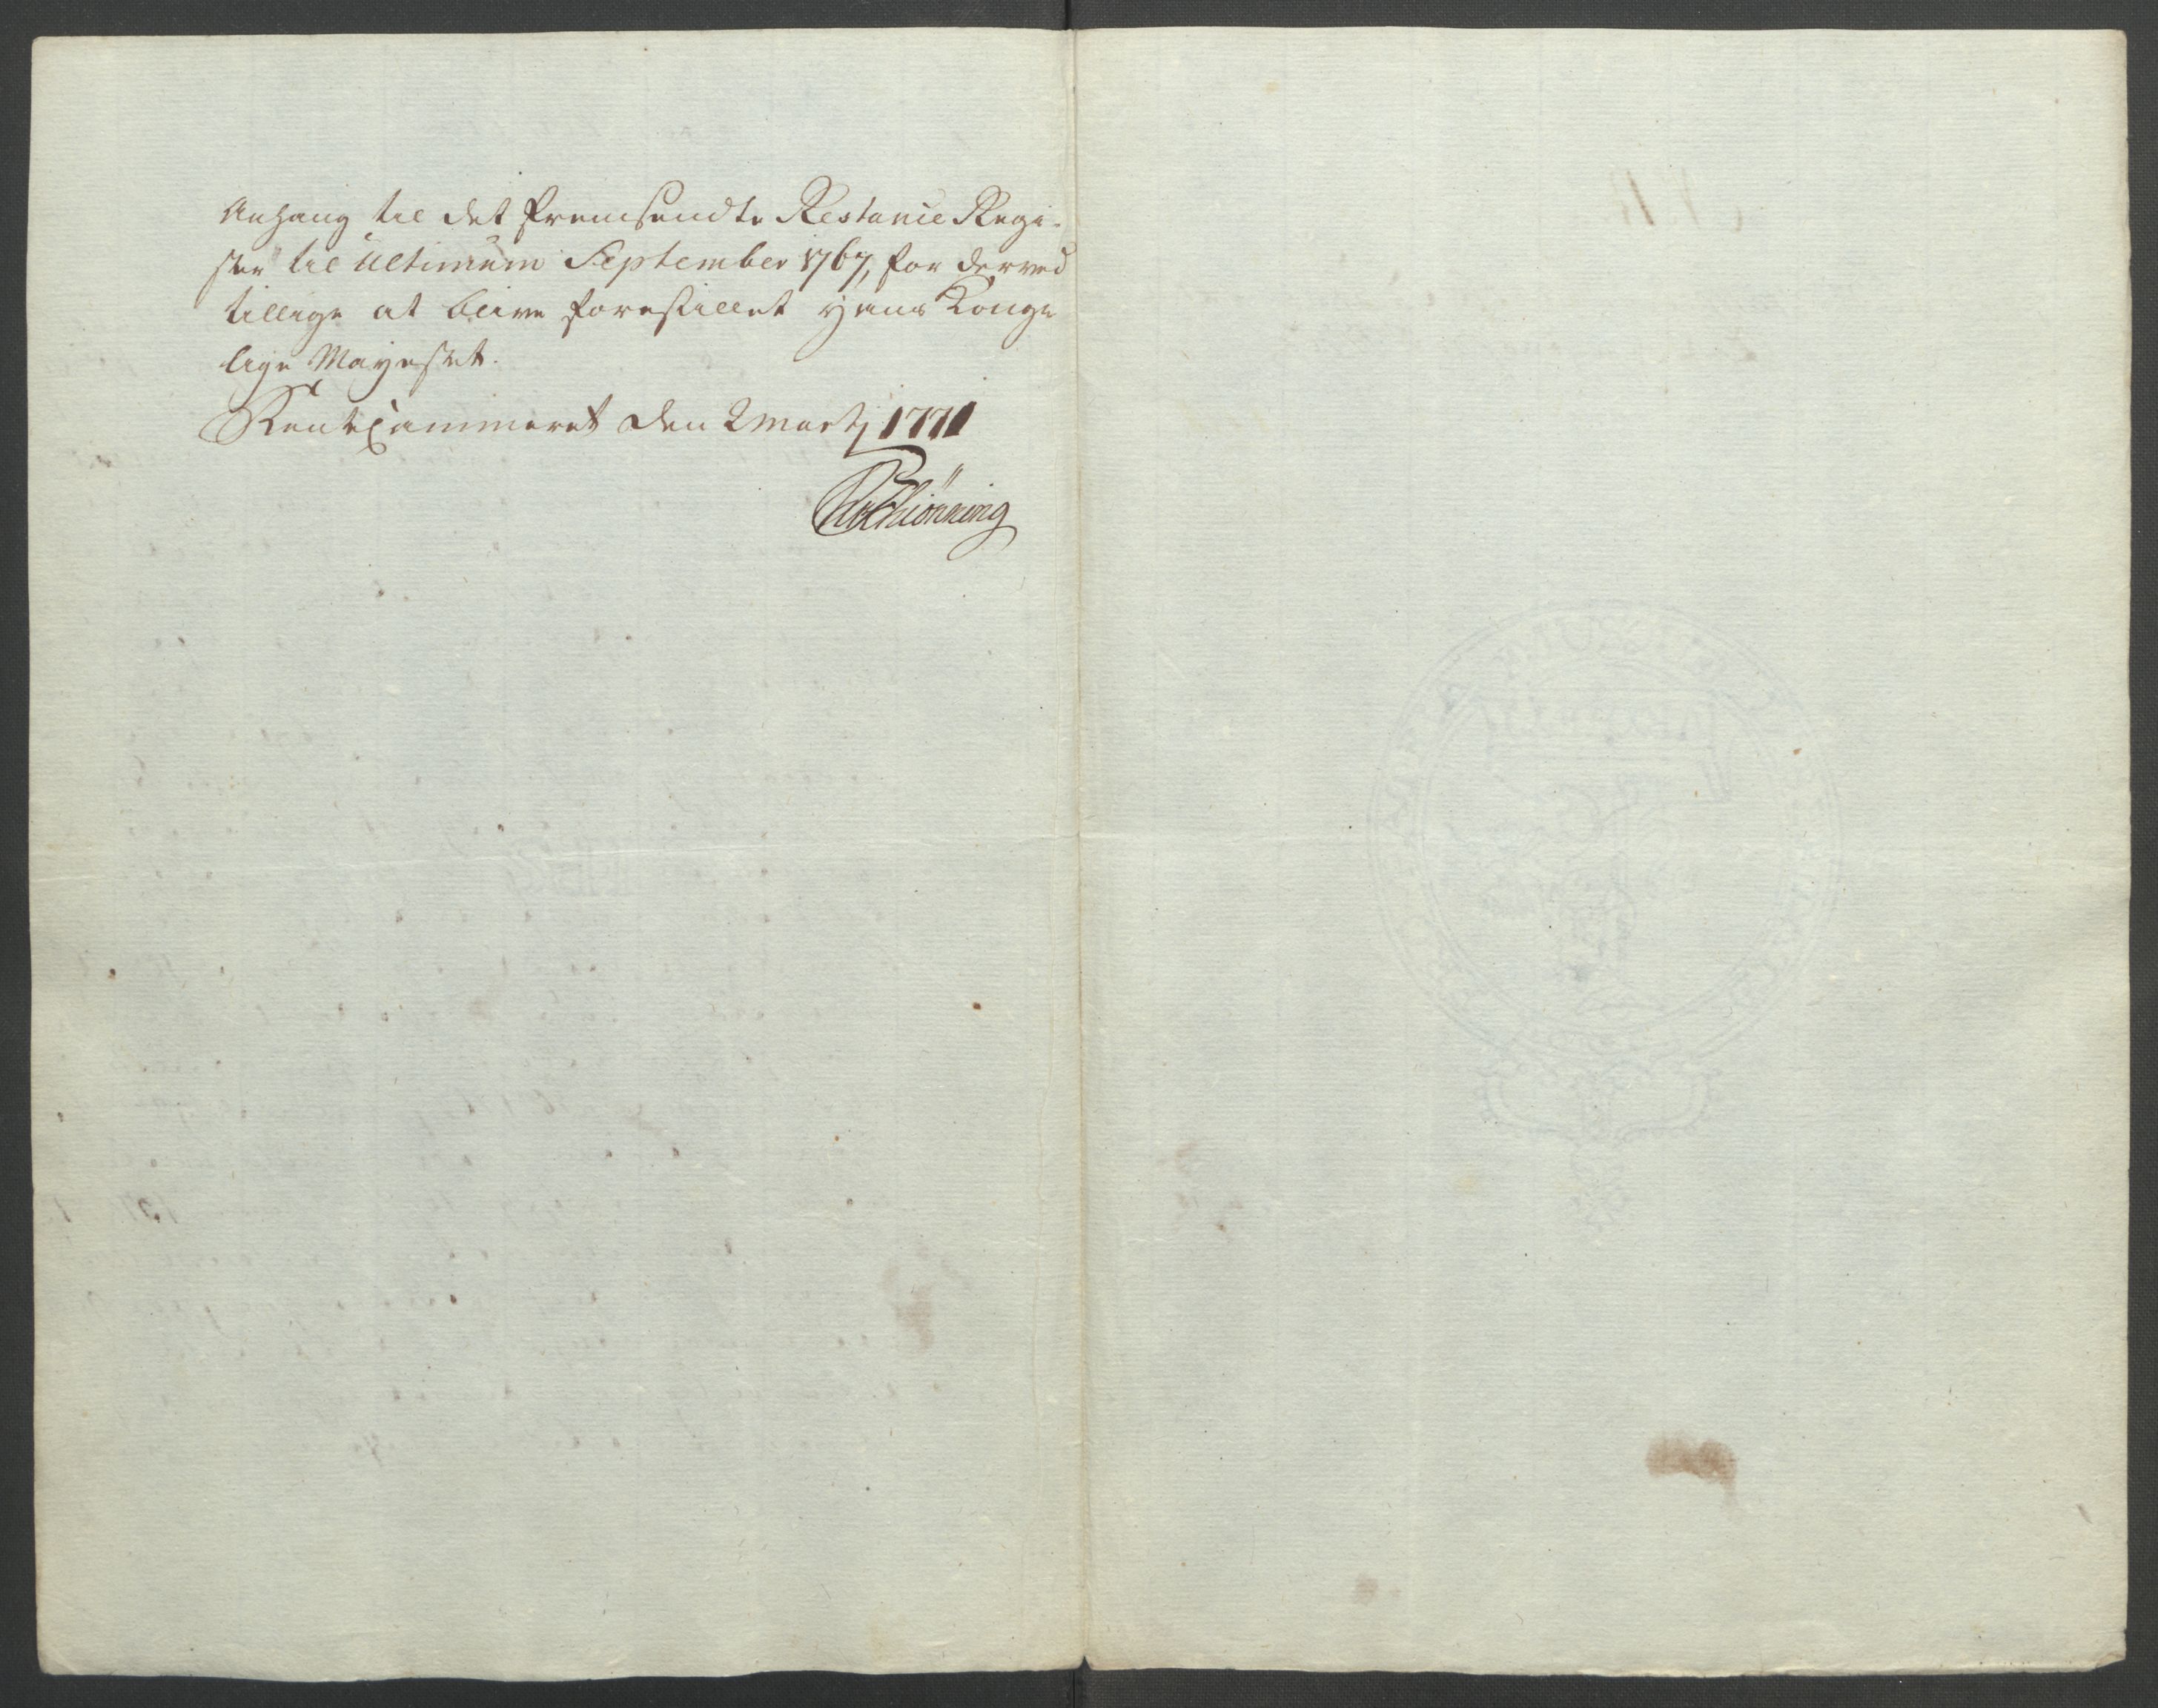 Anhang til det fremsendte Restance Regi-
ster til Ultimum September 1767, for derved
tillige at blive forestillet Hans Konge
lige Mayestet.
RenteCammeret den 2 Martj 1771